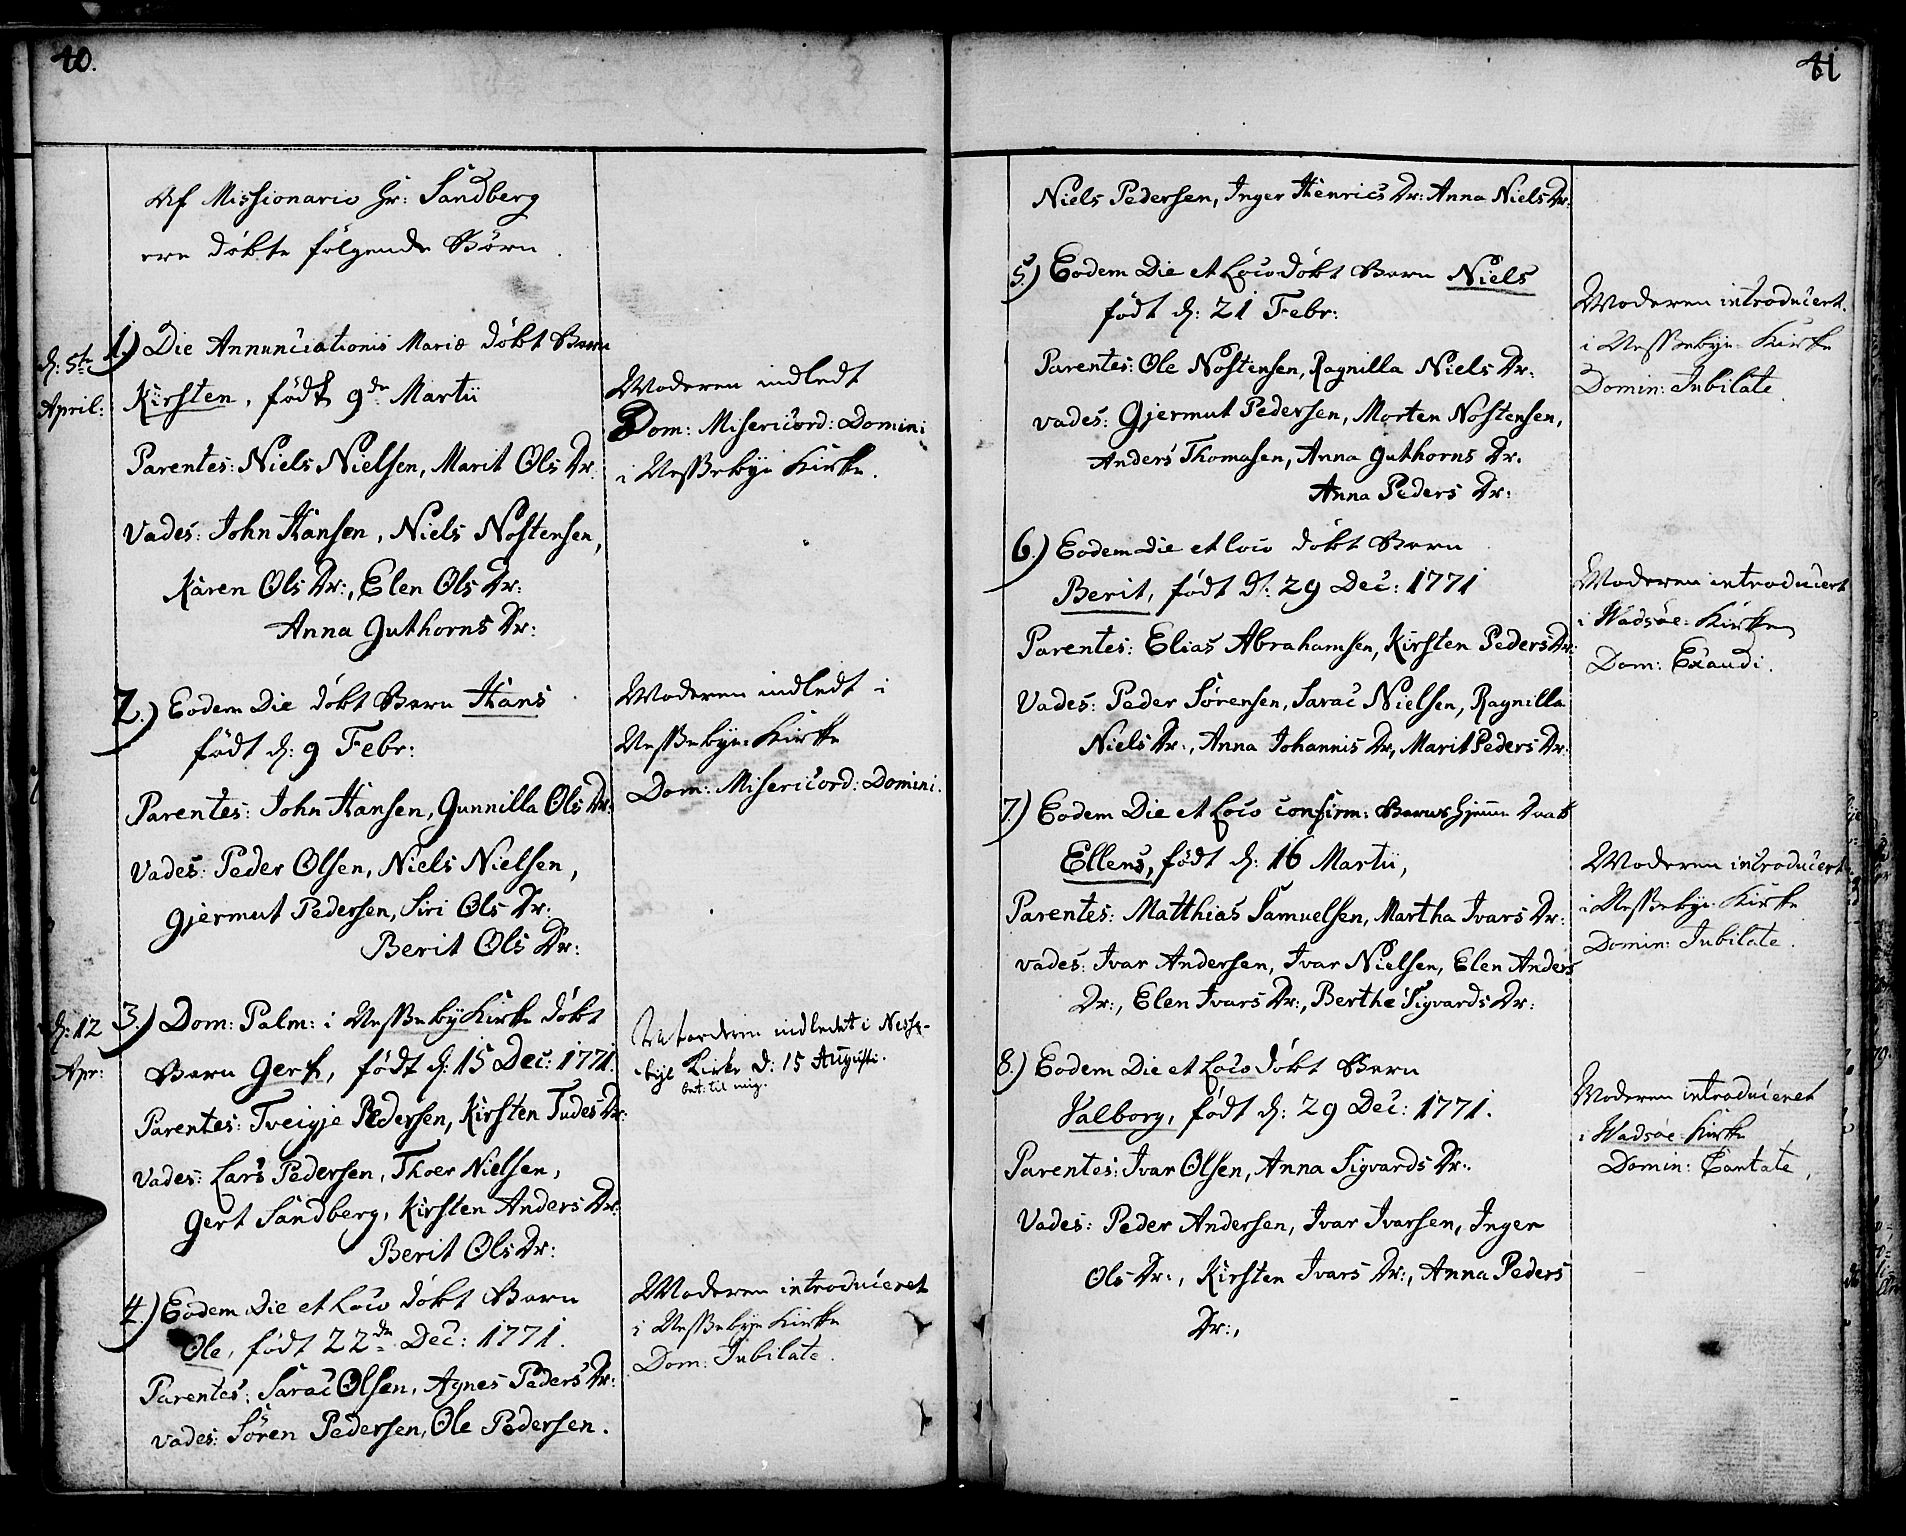 40.
Af Missionario Hr: Sandberg
ere døbte følgende Børn.
d: 5te
April:
1.) Die Annunciationis Mariæ døbt Barn
Kirsten, født 9de Martii
Parentes: Niels Nielsen, Marit Ols Dr.
Vades: John Hansen, Niels Nostensen,
Karen Ols Dr:, Elen Ols Dr:
Anna Guthorns Dr:
Moderen indledt
Dom: Misericord: Domini
i Nessebye Kirke.
2.) Eodem Die døbt Barn Hans
født d: 9 Febr:
Parentes: John Hansen, Gunnilla Ols Dr:
Vades: Peder Olsen, Niels Nielsen,
Gjermut Pedersen, Siri Ols Dr:
Berit Ols Dr:
Moderen indledt i
Nessebye: Kirke
Dom: Misericord: Domini.
d: 12
Apr:
3.) Dom: Palm: i Nesseby Kirke døbt
Barn Gert, født d: 15 Dec: 1771.
Parentes: Tveigje Pedersen, Kirsten Tudes Dr:
Vades: Lars Pedersen, Thoer Nielsen,
Gert Sandberg, Kirsten Anders Dr:
Berit Ols Dr:
Moderen indledet i Nesse-
bye Kirke d: 15 Augusti.
bet: til mig.
4.) Eodem Die et Loco døbt Barn
Ole, født 22de Dec: 1771.
Parentes: Sarac Olsen, Agnes Peders Dr:
Vades: Søren Pedersen, Ole Pedersen.
Moderen introduceret
i Nessebye Kirke
Dom: Jubilate.
41
Niels Pedersen, Inger Henrics Dr: Anna Niels Dr:
5.) Eodem Die et Loco døbt Barn Niels
født d: 21 Febr:
Parentes: Ole Nostensen, Ragnilla Niels Dr:
Vades: Gjermut Pedersen, Morten Nostensen,
Anders Thomasen, Anna Guthorns Dr.
Anna Peders Dr:
Moderen introducert.
i Nessebye Kirke
Domin: Jubilate.
6.) Eodem Die et loco døbt Barn
Berit, født d: 29 Dec: 1771
Parentes: Elias Abrahamsen, Kirsten Peders Dr:
Vades: Peder Sørensen, Sarac Nielsen, Ragnilla
Niels Dr:, Anna Johannis Dr, Marit Peders Dr:
Moderen introducert
i Wadsøe: Kirke
Dom: Exaudi.
7.) Eodem Die et Loco confirm: Barns Hjemme Daab
Ellens, født d: 16 Martii,
Parentes: Matthias Samuelsen, Martha Ivars Dr:
Vades: Ivar Andersen, Ivar Nielsen, Elen Anders
Dr:, Elen Ivars Dr:, Berthe Sigvards Dr:
Moderen introducert
i Nessebye Kirke
Domin: Jubilate.
8.) Eodem Die et Loco døbt Barn
Valborg, født d: 29 Dec: 1771.
Parentes: Ivar Olsen, Anna Sigvards Dr:
Vades: Peder Andersen, Ivar Ivarsen, Inger
Ols Dr:, Kirsten Ivars Dr:, Anna Peders
Dr:,
Moderen introduceret
i Wadsøe Kirke
Domin: Cantate,